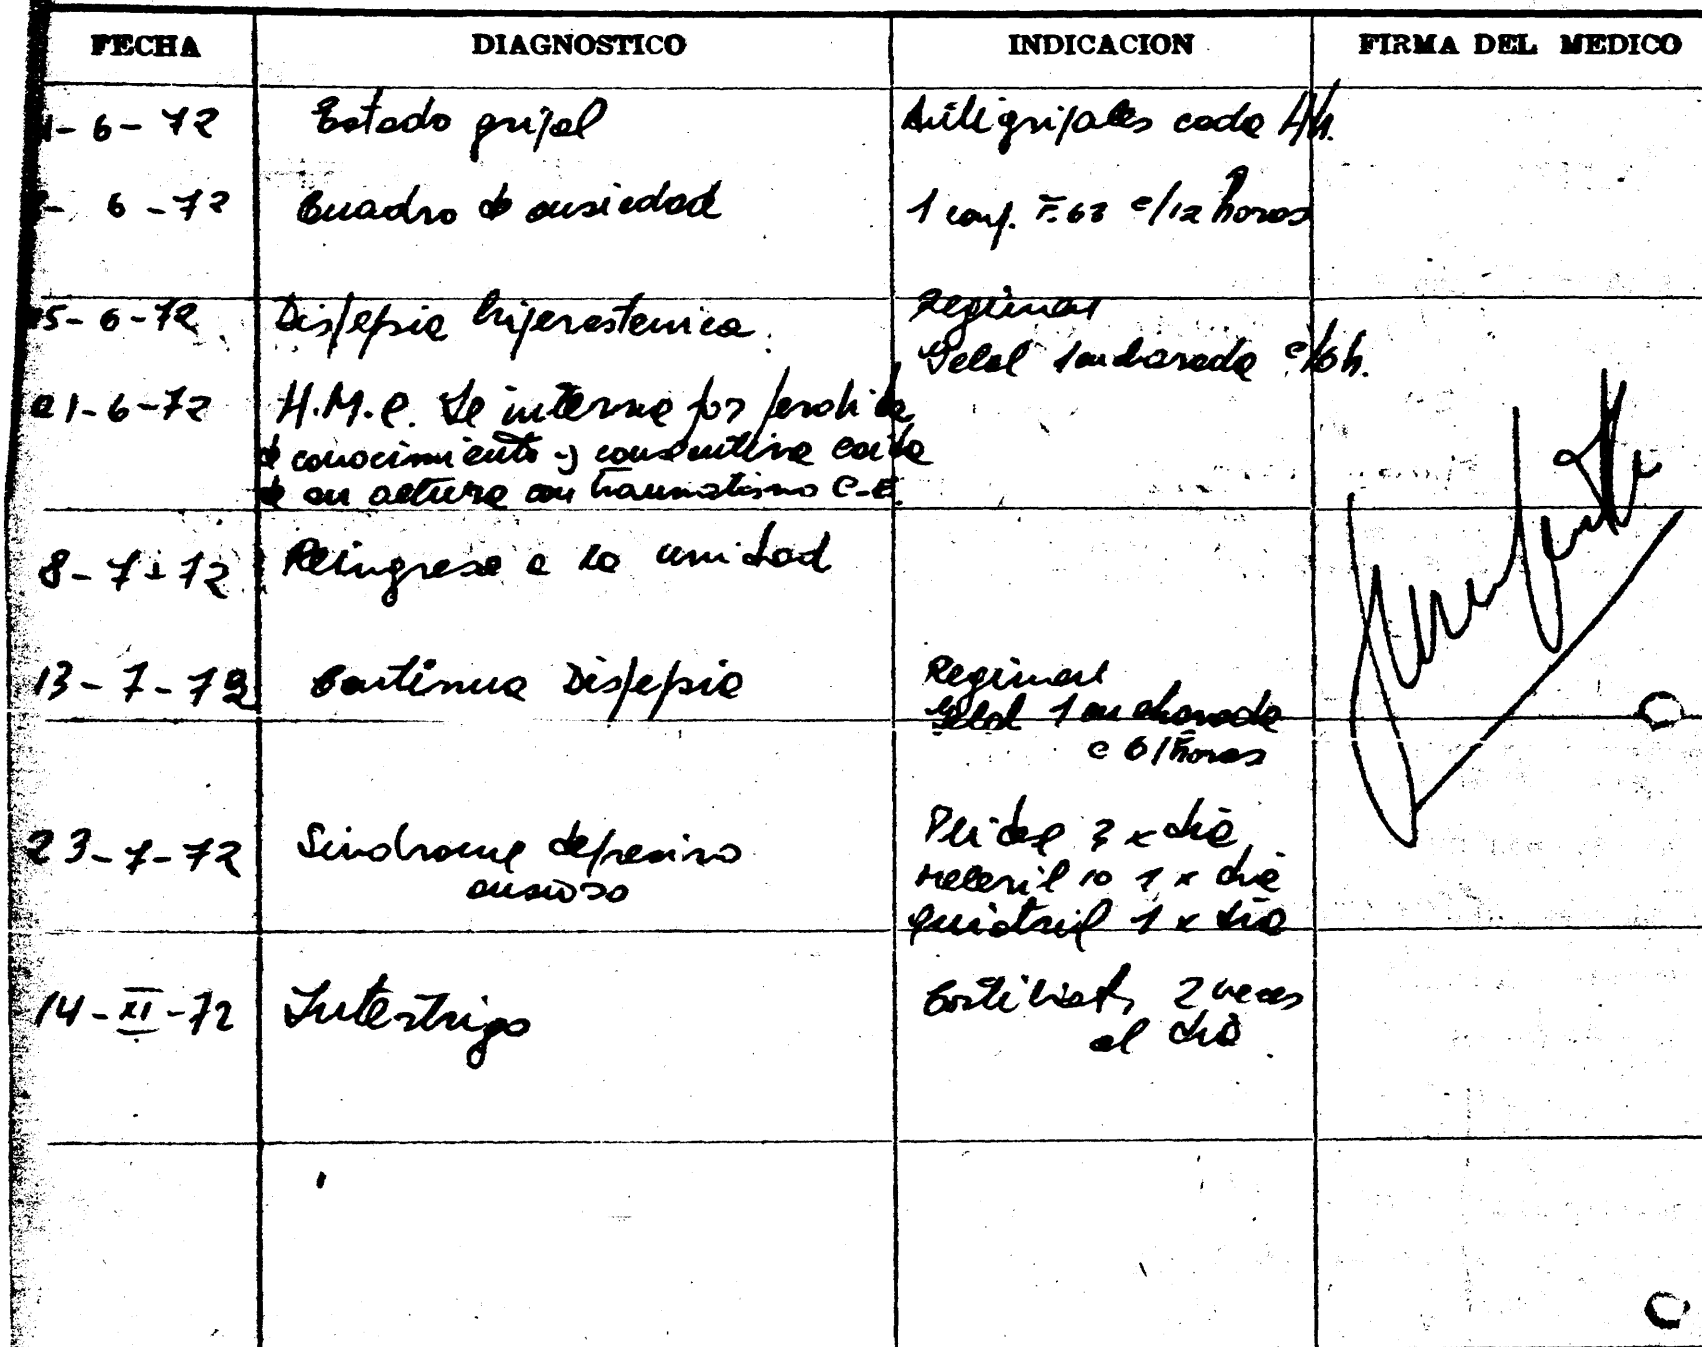 FECHA DIAGNOSTICO INDICACION FIRMA DEL MEDICO
1-6-72 Estado gripal Antigripales cada 4h.
6-72 Cuadro de ansiedad 1 comp. F.68 c/12 horas
15-6-72 Dispepsia hiperestenica Regimen
Gelal 1 cucharada c/6h.
21-6-72 H.M.C. Se interna por perdida
de conocimiento y consecutiva caida
de su altura con traumatismo C-E.
8-7-72 Reingresa a la unidad
13-7-72 Continua Dispepsia Regimen
Gelal 1 cucharada
c 6/horas
23-7-72 Sindrome depresivo
ansioso
3 x dia
Meleril 10 1 x dia
1 x dia
14-XI-72 Intertrigo 2 veces
al dia